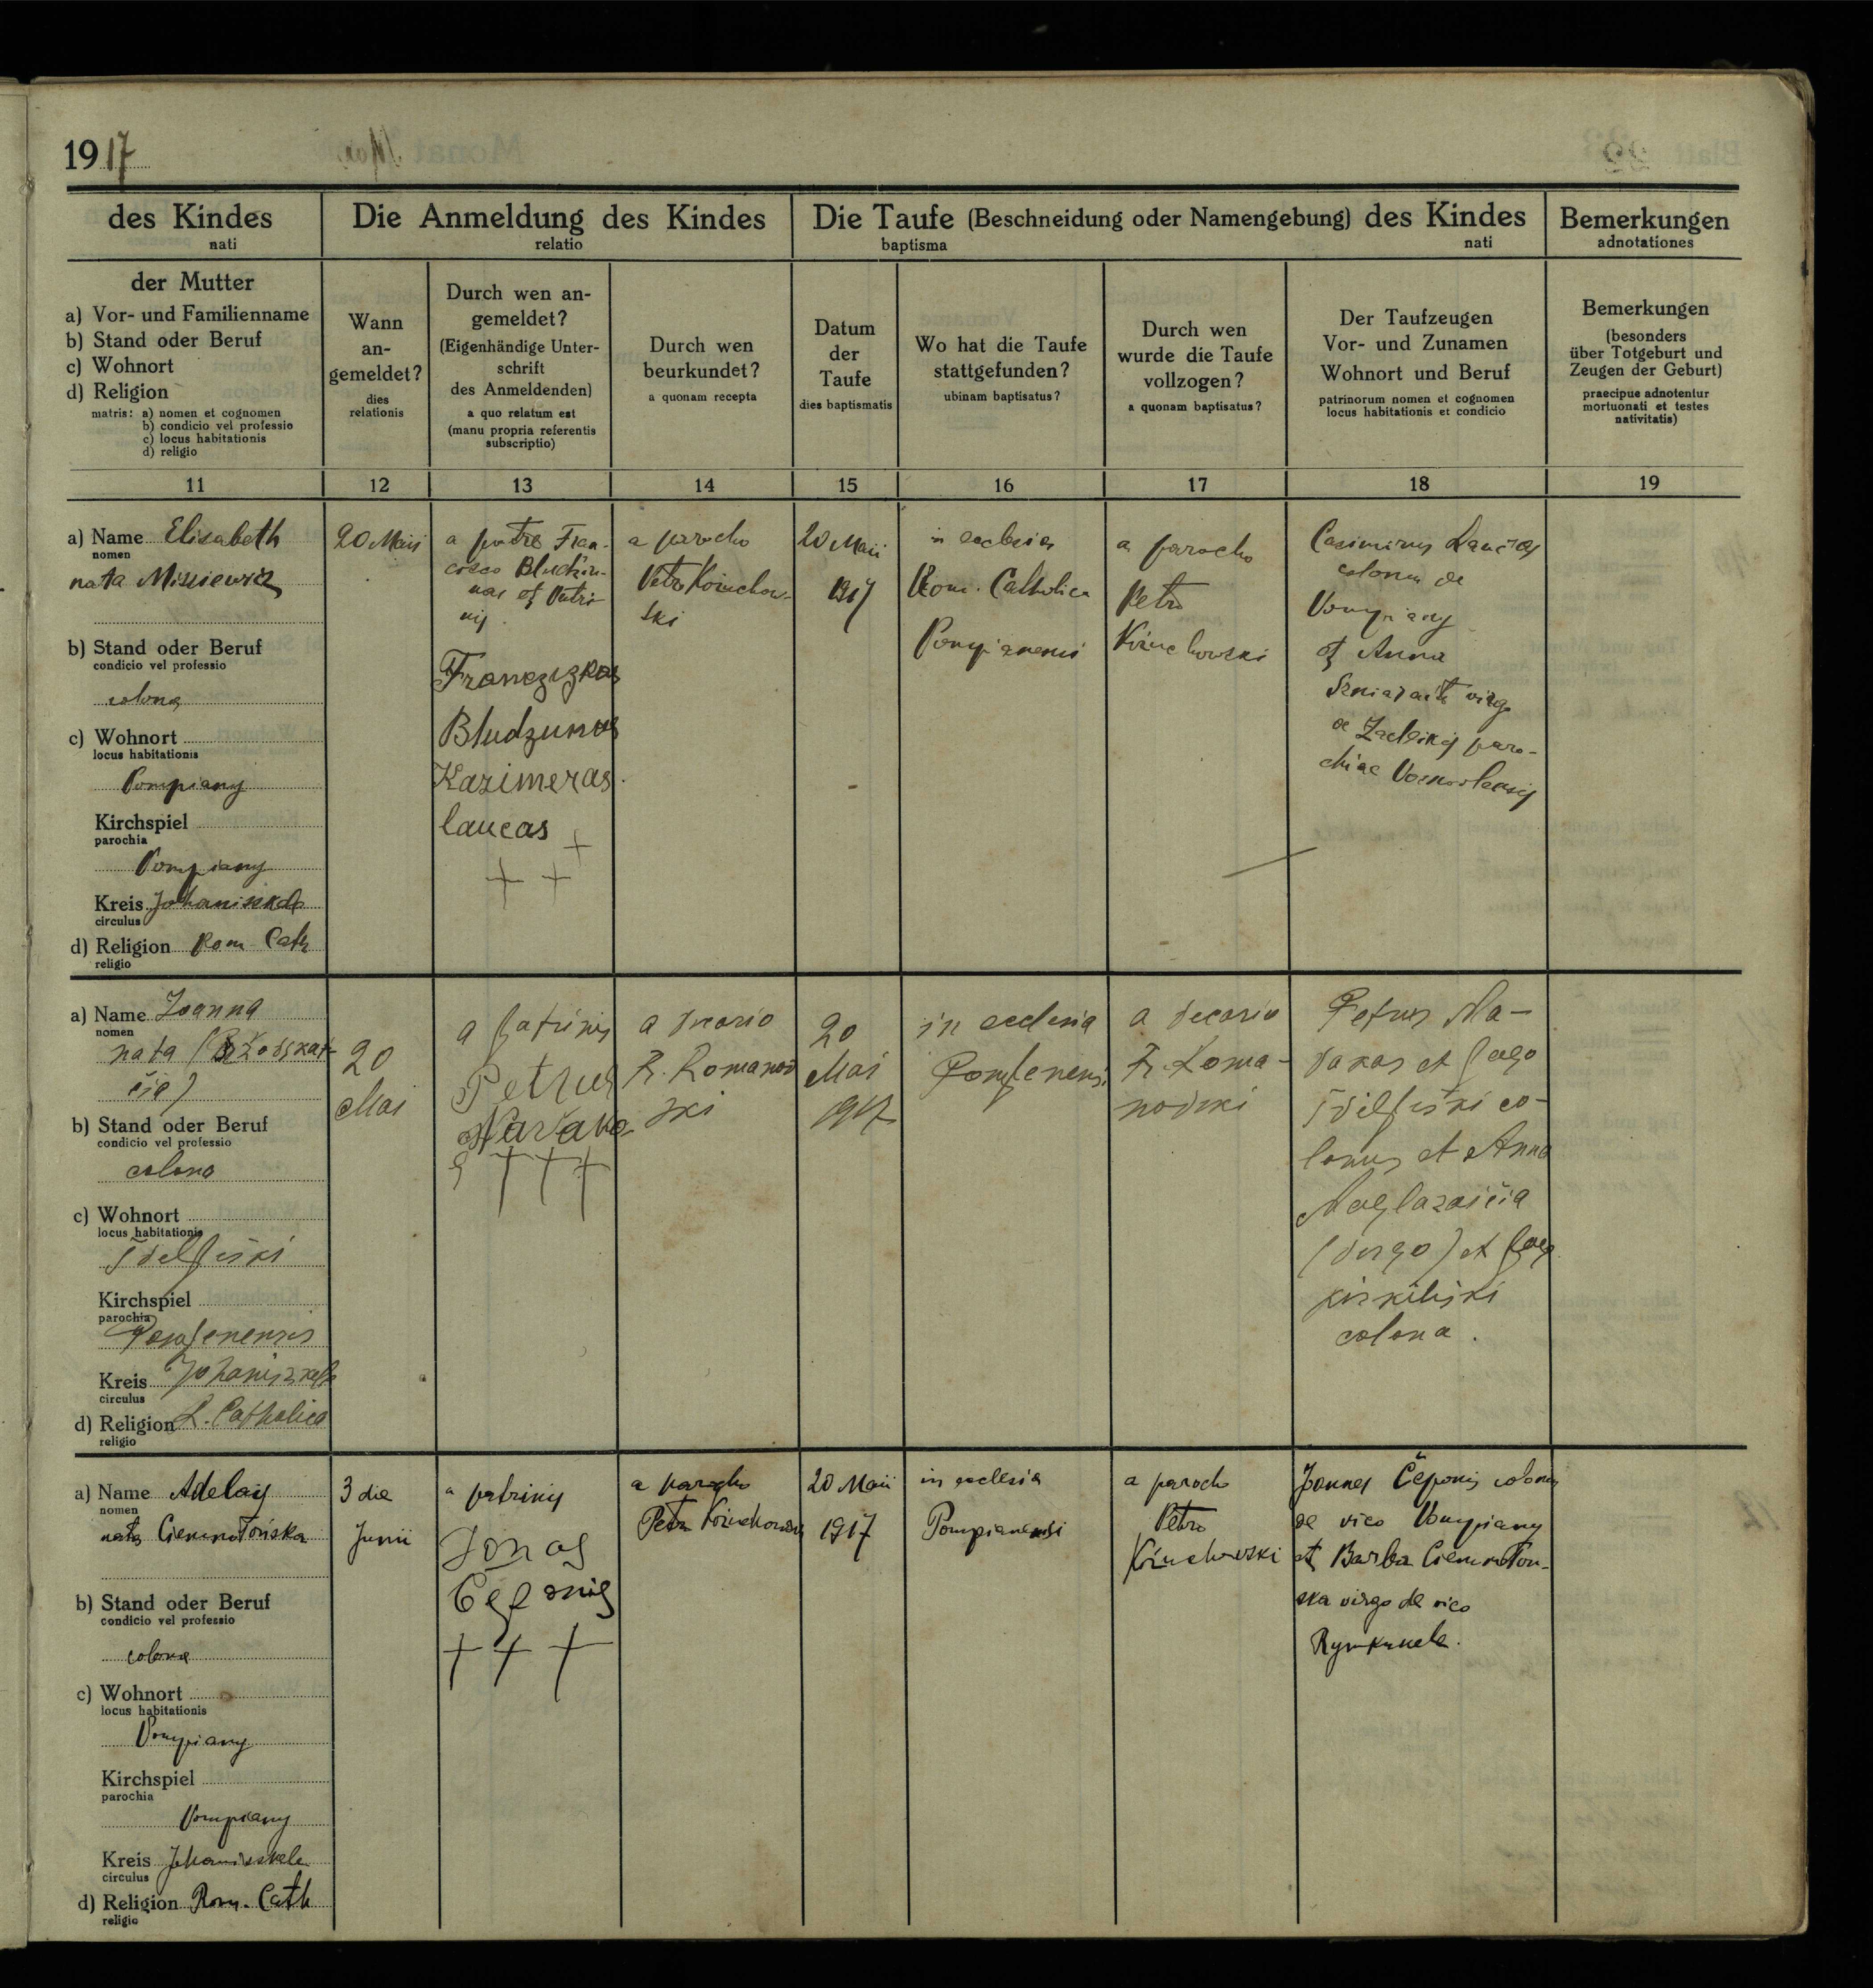 1917
des Kindes
nati
Die Anmeldung des Kindes
relatio
Die Taufe (Beschneidung oder Namengebung) des Kindes
baptisma nati
Bemerkungen
adnotationes
der Mutter
a) Vor- und Familienname
b) Stand oder Beruf
c) Wohnort
d) Religion
matris: a) nomen et cognomen
b) condicio vel professio
c) locus habitationis
d) religio
Wann
an-
gemeldet?
dies
relationis
Durch wen an-
gemeldet?
(Eigenhändige Unter-
schrift
des Anmeldenden)
a quo relatum est
(manu propria referentis
subscriptio)
Durch wen
beurkundet?
a quonam recepta
Datum
der
Taufe
dies baptismatis
Wo hat die Taufe
stattgefunden?
ubinam baptisatus?
Durch wen
wurde die Taufe
vollzogen?
a quonam baptisatus?
Der Taufzeugen
Vor- und Zunamen
Wohnort und Beruf
patrinorum nomen et cognomen
locus habitationis et condicio
Bemerkungen
(besonders
über Totgeburt und
Zeugen der Geburt)
praecipue adnotentur
mortuonati et testes
nativitatis)
11 12 13 14 15 16 17 18 19
a) Name Elisabeth
nomen
nata Misiewicz
b) Stand oder Beruf
condicio vel professio
colona
c) Wohnort
locus habitationis
Pompiany
Kirchspiel
parochia
Pompiany
Kreis Johaniszkele
circulus
d) Religion Rom Cath
religio
20 Maii
a patre Fran-
cisco Bludzu-
nas et Patri-
nis
Franciszkas
Bludzunas
Kazimeras
laucas +
+ +
a parocho
Petro Koziuchow-
ski
20 Maii
1917
in ecclesia
Rom. Catholica
Pompianensi
a parocho
Petro
Casimirus Laucas
colonus de
Pompiany
et Anna
virgo
de paro-
chiae
a) Name Joanna
nomen
nata
b) Stand oder Beruf
condicio vel professio
colona
c) Wohnort
locus habitationis
Kirchspiel
parochia
Pompenensis
Kreis Johaniszkele
circulus
d) Religion R. Catholica
religio
20
Mai
a patrinis
Petrus
+++
a vicario
R. Romanow
ski
20
Mai
1917
in ecclesia
Pompenensi
a vicario
R. Roma-
nowski
Petrus Na-
vakas et pago
co-
lonus et Anna
(virgo) et pago
colona.
a) Name Adelay
nomen
nata Ciemnołońska
b) Stand oder Beruf
condicio vel professio
colona
c) Wohnort
locus habitationis
Pompiany
Kirchspiel
parochia
Pompiany
Kreis Johaniszkele
circulus
d) Religion Rom. Cath
religio
3 die
Junii
a patrinis
Jonas
Ceponis
+ + +
a parocho
Petro Koziuchowski
20 Maii
1917
in ecclesia
Pompianensi
a parocho
Petro
Koziuchowski
Joannes Čeponis colonus
de vico Pompiany
et Barba Ciemnołoń-
ska virgo de vico